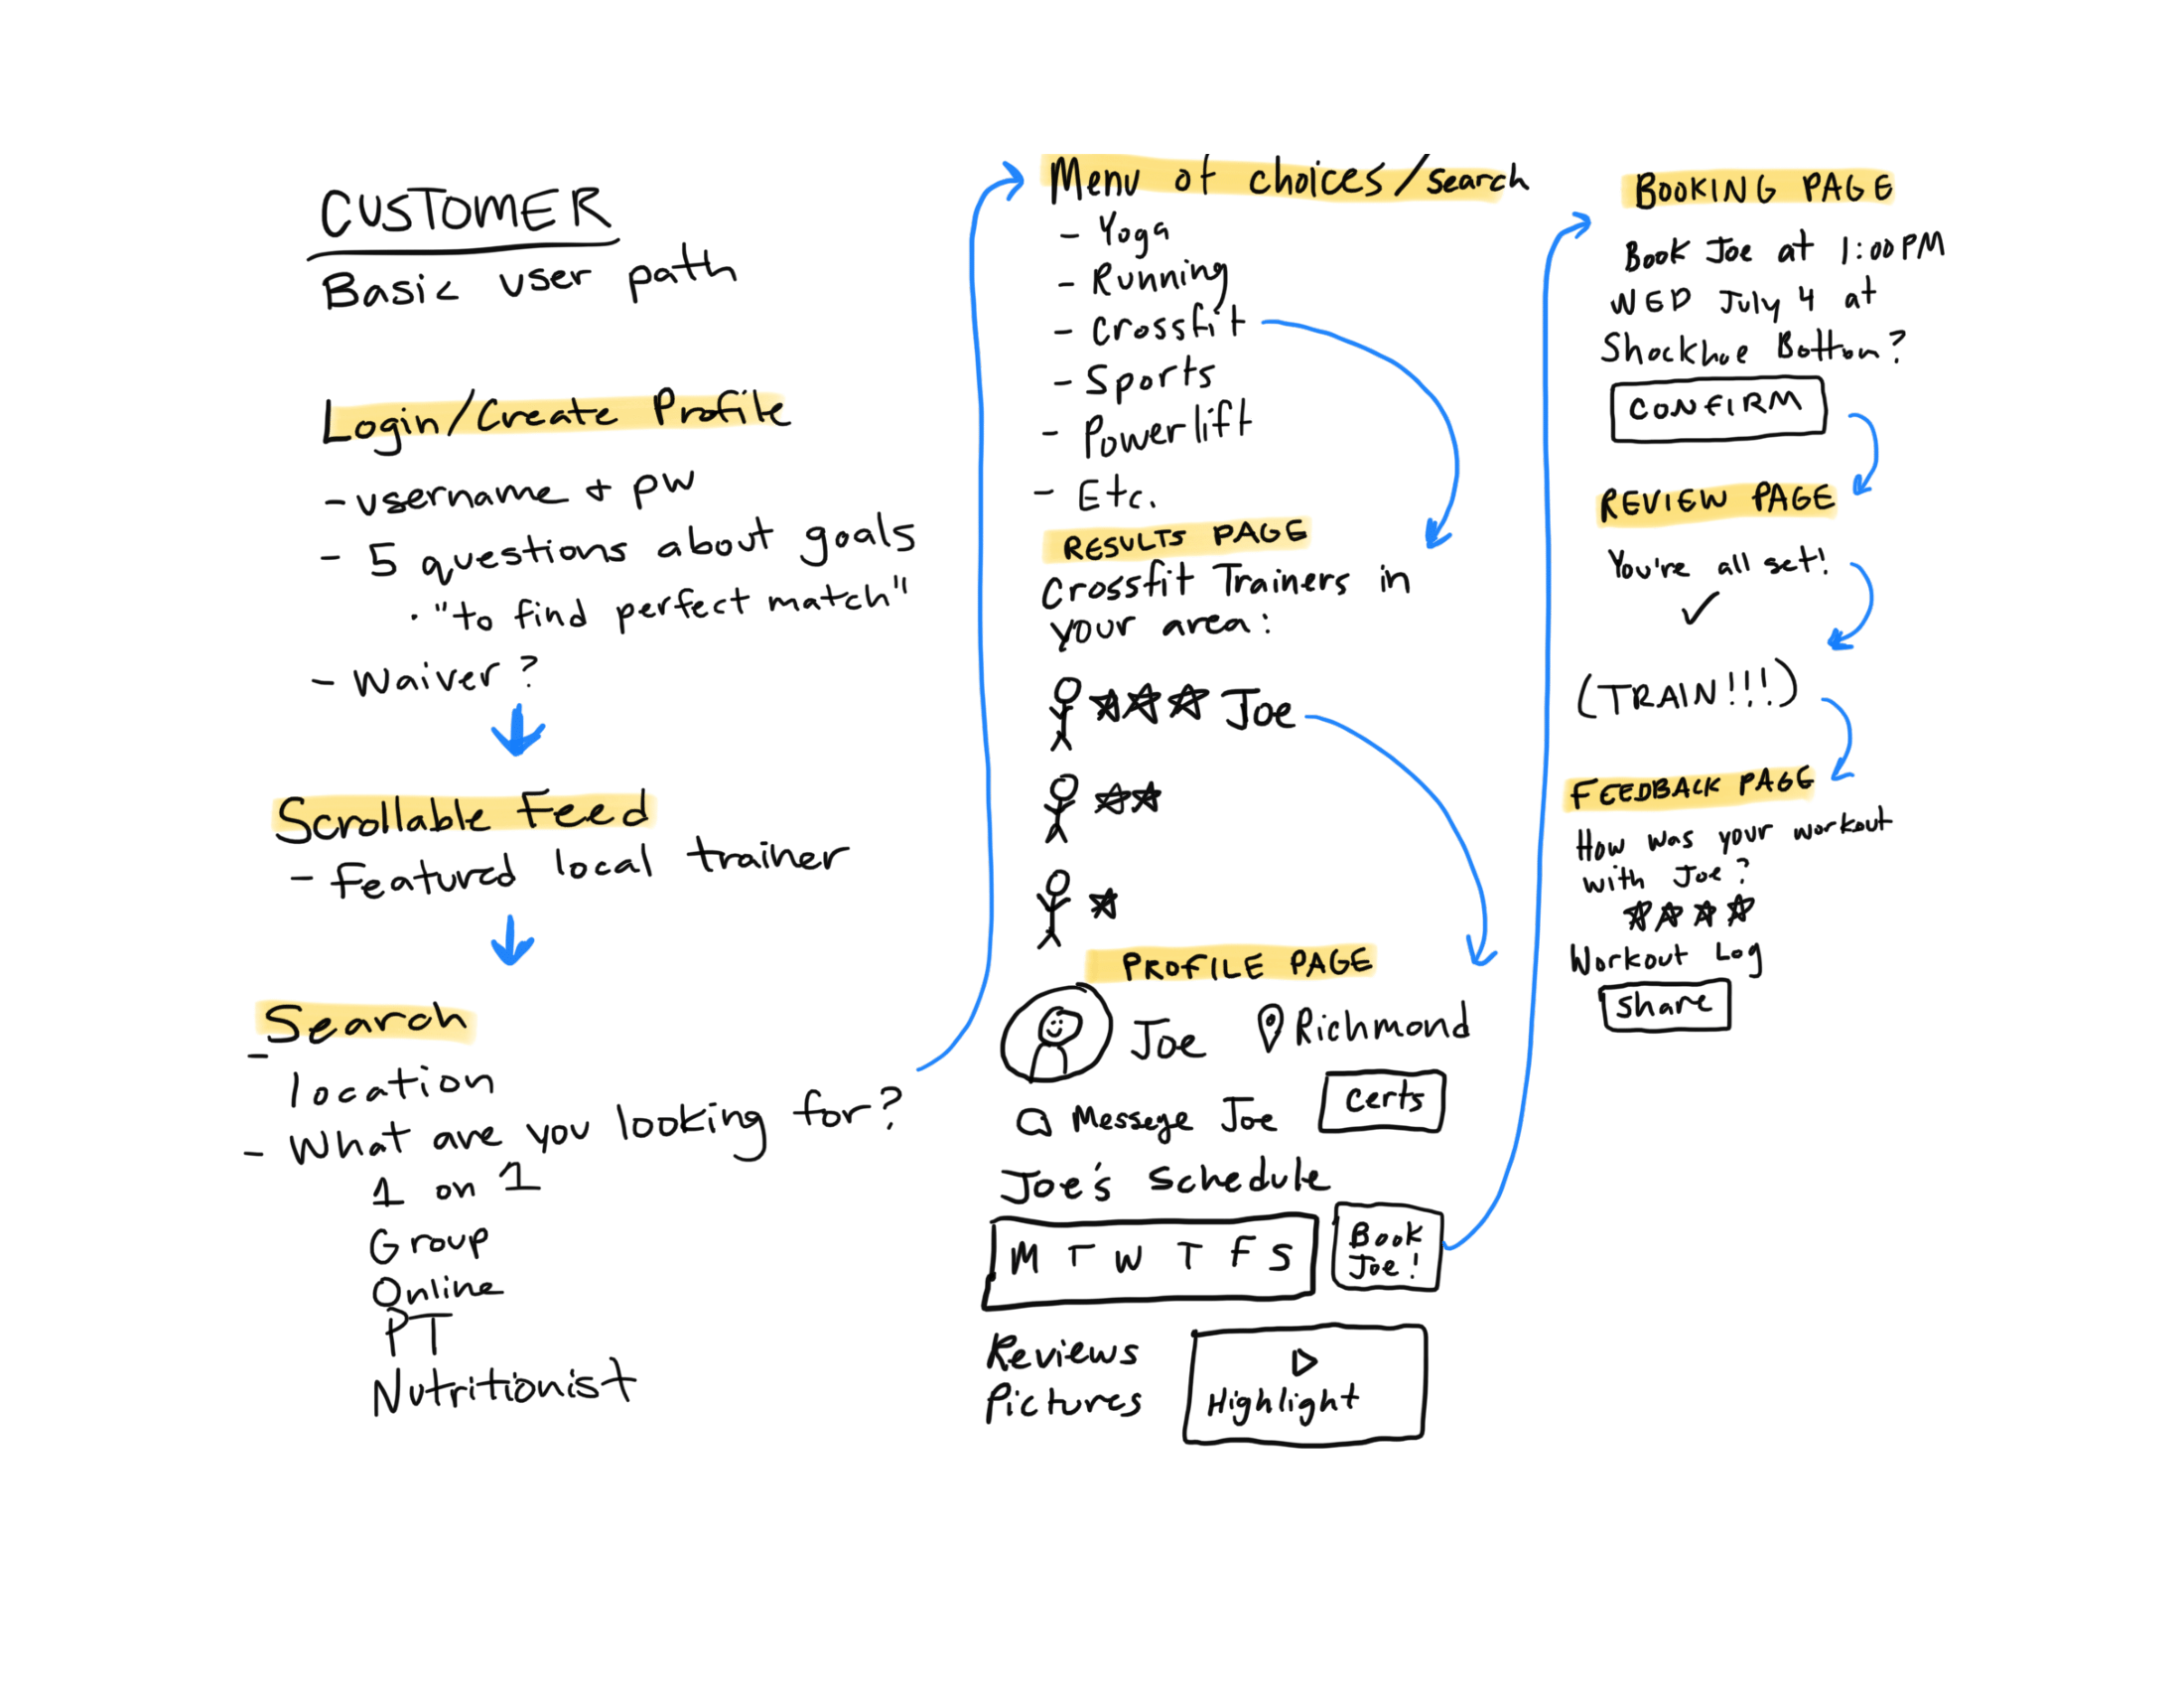 CUSTOMER
Basic user path
Login/Create Profile
- username + pw
- 5 questions about goals
· "to find perfect match"
- Waiver?
Scrollable Feed
- Featured local trainer
Search
- location
- What are you looking for?
1 on 1
Group
Online
PT
Nutritionist
Menu of choices/search
- Yoga
- Running
- Crossfit
- Sports
- Powerlift
- Etc.
RESULTS PAGE
Crossfit Trainers in
your area:
Joe
PROFILE PAGE
Joe Richmond
Messege Joe certs
Joe's Schedule
M T W T F S
Book
Joe!
Reviews
Pictures
Highlight
BOOKING PAGE
Book Joe at 1:00PM
WED July 4 at
Shockhoe Bottom?
CONFIRM
REVIEW PAGE
You're all set!
(TRAIN!!!)
FEEDBACK PAGE
How was your workout
with Joe?
Workout Log
share